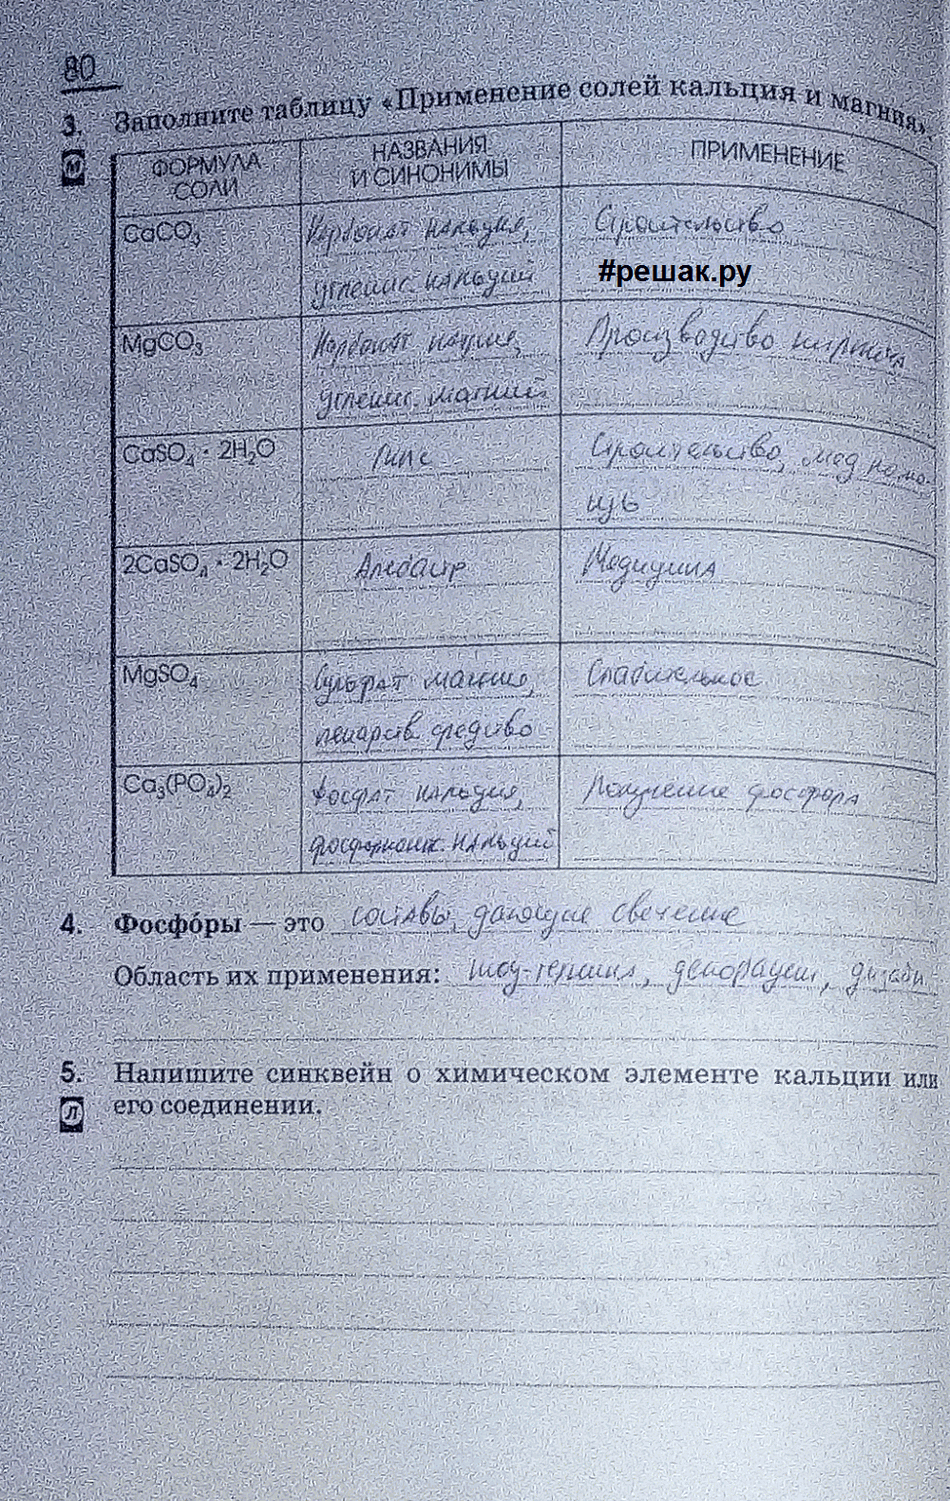 80
3. Заполните таблицу «Применение солей кальция и магния».
М
ФОРМУЛА СОЛИ
НАЗВАНИЯ И СИНОНИМЫ
ПРИМЕНЕНИЕ
CaCO3
Карбонат кальция,
углекис кальций
Строительство
#решак.ру
MgCO3
Карбонат магния,
углекис. магний
Производство кирпича
CaSO4 · 2H2O
Гипс
Строительство, мед помо-
щь
2CaSO4 · 2H2O
Алебастр
Медицина
MgSO4
Сульфат магния,
лекарств средство
Слабительное
Ca3(PO4)2
Фосфат кальция,
фосфорнокис. кальций
Получение фосфора
4. Фосфо́ры — это составы, дающие свечение
Область их применения: шоу-терапия, декорации, дизайн
5. Напишите синквейн о химическом элементе кальции или
Л
его соединении.